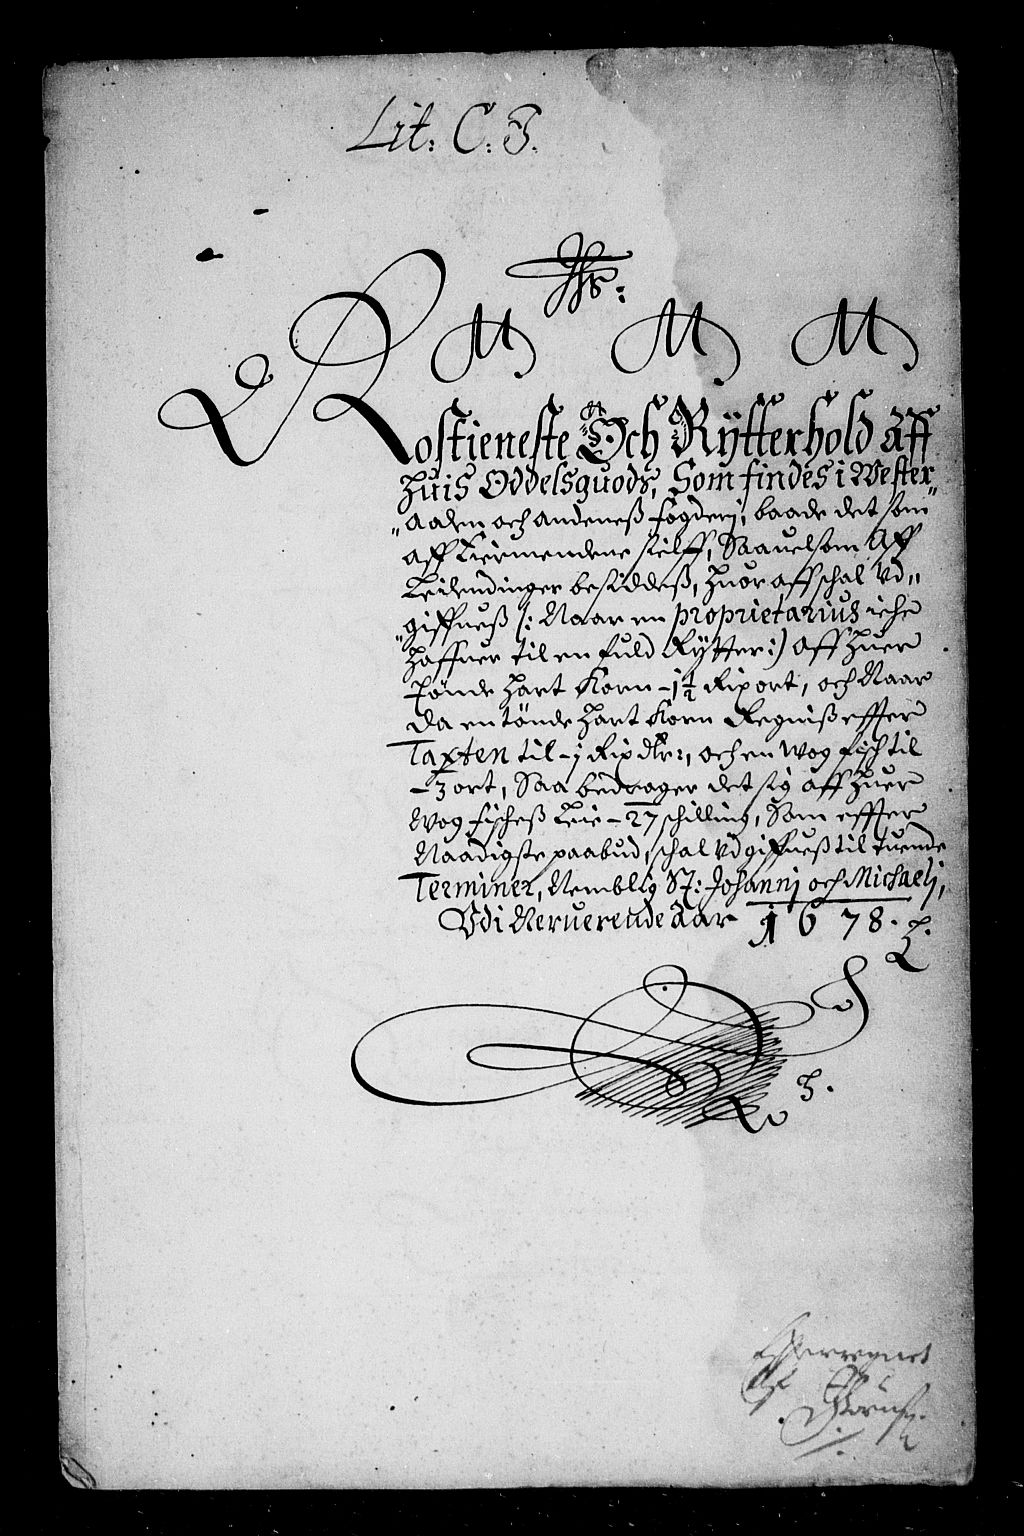 Lit: C. J.
Jhs:
M M M
Rostieneste Och Rÿtterhold Aff
huis Oddelsguods, Som findes i Wester„
„aalen och andeness fogderij, baade det som
aff Eiermendene sielff, Saauelsom Aff
Leilendinger besiddess, huor aff schal Vd„
„giffuess /: Naar en proprietarius iche
haffuer til en fuld Rÿtter :) aff huer
tønde hart Korn - 1½ Rix ort, och Naar
da en tønde hart Korn Regniss effter
Taxten til - 1 Rix dlr:, och en wog fisch til
- 3 ort, Saa bedrager det sig aff huer
Wog fischess Leie - 27 schilling, Som effter
Naadigste paabud, schal Vdgiffuess til tuende
Terminer, Nemblig St: Johannj och Michaelj,
Vdi Neruerende Aar 1678.